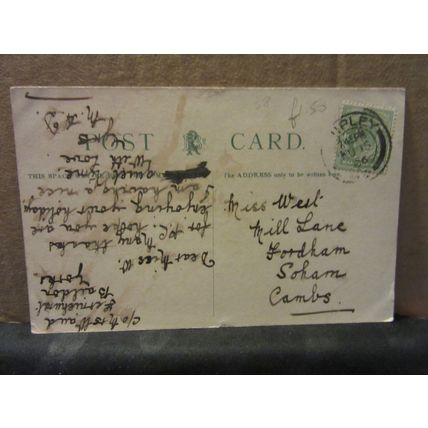 f 50
SHIPLEY
POST CARD.
THIS SPACE
The ADDRESS only to be written here.
c/o Mrs Wand
Ferniehurst
Baildon
Yorks
Dear Miss W.
Many thanks
for P.C. hope you are
enjoying your holiday
am having a nice
quiet time
With love
Yrs
M.A.D.
Miss West
Mill Lane
Fordham
Soham
Cambs.